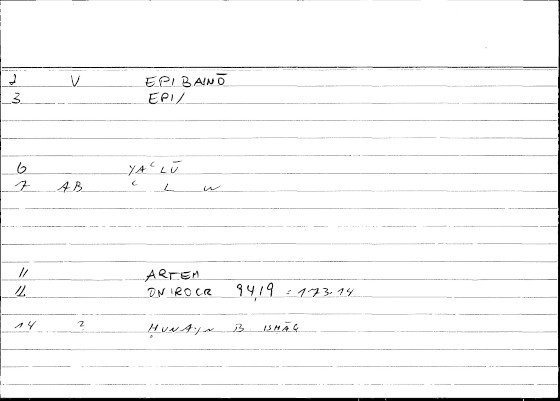 2 V EPIBAINŌ
3 EPI/
6 YAᶜLŪ
7 AB ᶜ L W
11 ARTEM
12 ONIROCR 94,19 = 173.14
14 2 ḤUNAYN B ISḤĀQ